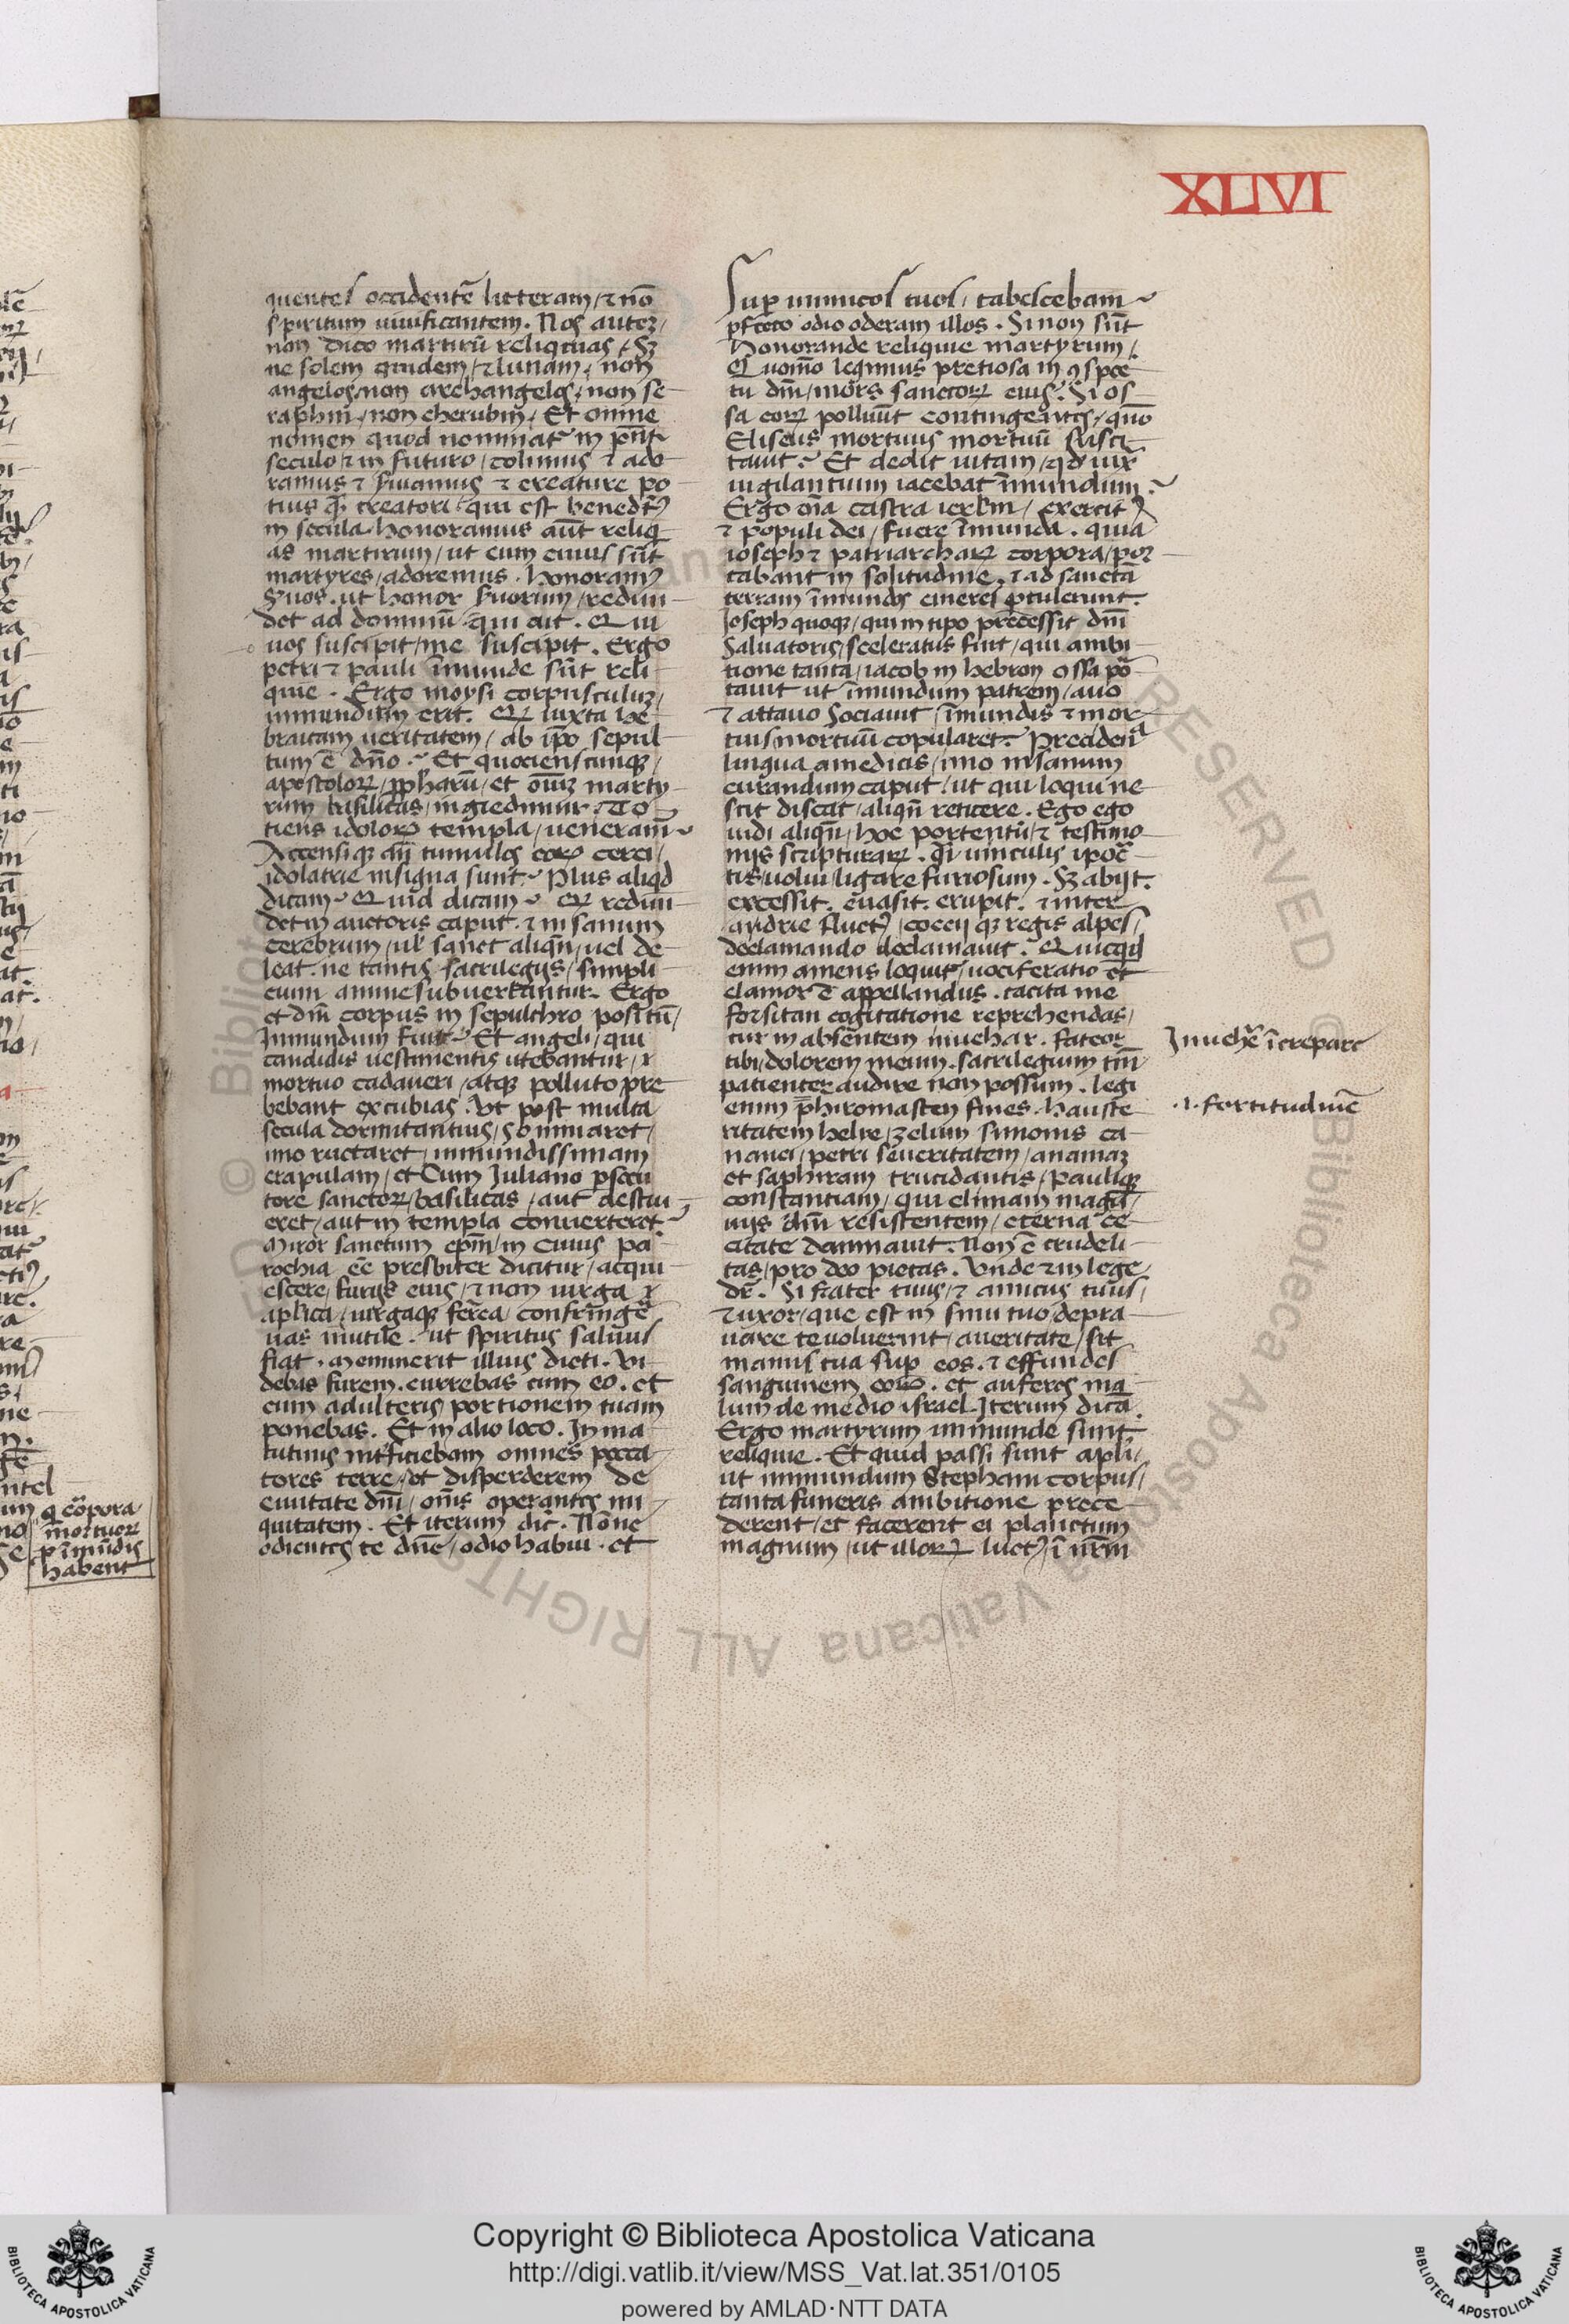 XLIVI
quentes occidentē litteram / ⁊ nō
spiritum uiuificantem . Nos autez /
non dico martirū reliquias / Sꝫ
ne solem quidem / ⁊ lunam / non
angelos / non archangelos / non se
raphin / non cherubin / Et omne
nomen quod nominat̃ in p̄nti
seculo / ⁊ in futuro / colimus ⁊ ado
ramus ⁊ ẜuiamus ⁊ creature po
tius q̃ creatori / qui est bened̄tꝰ
in secula . honoramus aūt reliq
as martirum / ut eum cuius sūt
martyres / adoremus . honoramꝰ
ẜuos . ut honor ẜuorum / redun
det ad dominū . qui ait . Qui
uos suscipit / me suscipit . Ergo
petri ⁊ pauli īmunde sūt reli
quie . Ergo moysi corpusculuz /
immundum erit . Qꝫ iuxta he
braicam ueritatem / ab ip̄o sepul
tum ē dño . Et quocienscunqꝫ /
apostoloꝝ / ꝓpharū / et oīuz marty
rum basilicas / ingredimur . To
tiens idoloꝝ templa / ueneram̃
Accensiqꝫ an̄ tumulos eoꝝ cerei /
idolatrie insigna sunt Plus aliqd
dicam Quid dicam Qꝫ redun
det in auctoris caput . ⁊ insanum
cerebrum / ul̓ sanet aliqñ / uel de
leat . ne tantis sacrilegijs / simpli
cium anime subuertantur . Ergo
et dn̄i corpus in sepulchro positū /
Inmundum fuit Et angeli / qui
candidis uestimentis utebantur / ⁊
mortuo cadaueri / atqꝫ polluto pre
bebant excubias . Vt post multa
secula dormitantius / somniaret /
imo ructaret / inmundissimam
crapulam / et Cum Juliano ꝑsecu
tore sanctoꝝ / basilicas / aut destru
eret / aut in templa conuerteret
Miror sanctum ep̄m / in cuius pa
rochia eē presbiter dicitur / acqui
escere / furijs eius / ⁊ non uirga
aplica / uirgaqꝫ ferrea / confringē
uas inutile . ut spiritus saluus
fiat . Meminerit illius dicti . Vi
debas furem . currebas cum eo . et
cum adulteris portionem tuam
ponebas . Et in alio loco . In ma
tutinis int̓ficiebam omnes pecca
tores terre / ut disperderem de
ciuitate dn̄i / om̄s operantes ini
quitatem . Et iterum dic̄ . Nōne
odientes te dn̄e / odio habui . et
Suꝑ inimicos tuos / tabescebam
ꝑfecto odio oderam illos . Si non sūt
honorande reliquie martyrum /
Quom̄o legimus pretiosa in ꝯspec
tu dn̄i / mors sanctoꝝ eius . Si os
sa eoꝝ polluūt contingentes / quō
Eliseus mortuus mortuū susci
tauit Et dedit uitam / qd̓ iux̃
uigilantium iacebat īmundum
Ergo oīa castra ierl̓m / exercitꝰ
⁊ populi dei / fuere īmunda . quia
ioseph ⁊ patriarchaꝝ corpora / por
tabant in solitudine . ⁊ ad sanctā
terram īmundos cineres ꝓtulerunt .
Joseph quoqꝫ / qui in tipo precessit dn̄i
Saluatoris / sceleratus fuit / qui ambi
tione tanta / iacob in hebron ossa por
tauit ut īmundum patrem / auo
⁊ attauo Sociauit / īmundis ⁊ mor
tuis / mortuū copularet . Preciden̄d
lingua a medicis / imo insanum
curandum caput / ut qui loqui ne
scit discat / aliqñ reticere . Ego ego
uidi aliqñ / hoc portentū / ⁊ testimo
nijs scripturaꝝ . q̃i uinculis ipoc̃
tis / uolui ligare furiosum . Sꝫ abijt .
excessit . euasit . erupit . ⁊ inter
andrie fluctꝰ / coccij qꝫ regis alpes /
declamando declamauit . Quicqd̓
enim amens loquit̃ / uociferatio et
clamor ē appellandus . tacita me
forsitan cogitatione reprehendas /
cur in absentem inuehar . fateor
tibi / dolorem meum . sacrilegium tm̄
patienter audire non possum . legi
enim phiromasten finees . hauste
ritatem helie / zelum simonis ca
nanei / petri seueritatem / anamaz
et saphiram trucidantis / pauliqꝫ
constantiam / qui elimam magū /
uijs dn̄i resistentem / eterna ce
citate damnauit . Non ē crudeli
tas / pro deo pietas . Vnde ⁊ in lege
dr̄ . Si frater tuus / ⁊ amicus tuus /
⁊ uxor / que est in sinu tuo / depra
uare te uoluerint / a ueritate / sit
manus tua suꝑ eos . ⁊ effundes
sanguinem eoꝝ . et auferes ma
lum de medio israel . Iterum dicā .
Ergo martyrum immunde sunt
relique . Et quid passi sunt apl̓i /
ut immundum Stephani corpus /
tanta funeris ambitione prece
derent / et facerent ei planctum
magnum / ut illoꝝ luctꝰ / ī nr̄m
Inuehēr̃ īcrepare
.i. fortitudinē
q̄ cōpora
mortuoꝝ
p īmūdis
habent